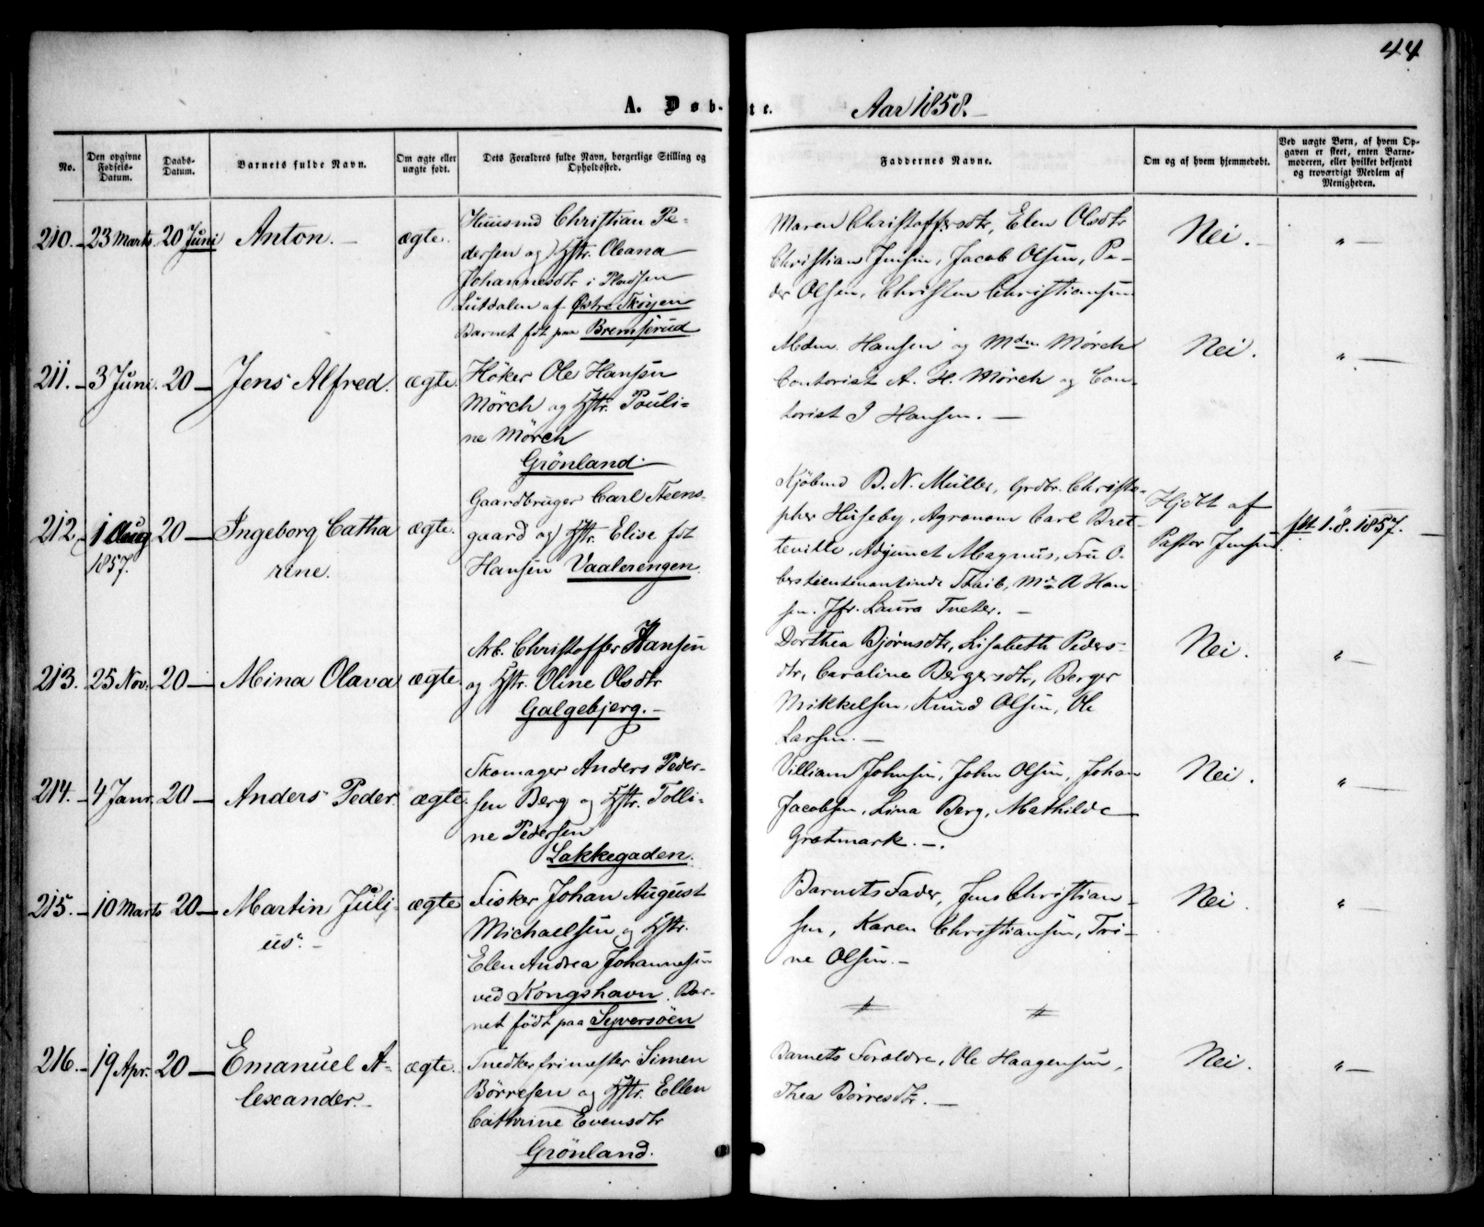 44
A. Døbte.
Aar 1858.
No.
Den opgivne Fødsels-Datum.
Daabs-Datum.
Barnets fulde Navn.
Om ægte eller uægte født.
Dets Forældres fulde Navn, borgerlige Stilling og Opholdssted.
Faddernes Navne.
Om og af hvem hjemmedøbt.
Ved uægte Børn, af hvem Opgaven er skeet, enten Barnemoderen, eller hvilket bekjendt og troværdigt Medlem af Menigheden.
210. 23 Marts. 20 Juni Anton. ægte.
Huusmd Christian Pe-
dersen og Hstr. Oleana
Johannesdtr i Pladsen
Lutdalen af Østre Skøyen
Barnet fdt paa Bremsrud
Maren Christoffersdtr, Elen Olsdtr
Christian Jensen, Jacob Olsen, Pe-
der Olsen, Christen Christiansen
Nei. "
211. 3 Juni. 20 Jens Alfred. ægte.
Höker Ole Hansen
Mörch og Hstr. Pauli-
ne Mörch
Grönland.
Mdm. Hansen og Mdm Mörch
Contorist A. H. Mörch og Con-
torist J Hansen.
Nei. "
212. 1 Aug 1857. 20 Ingeborg Catha
rine. ægte.
Gaardbruger Carl Steens-
gaard og Hstr. Elise fdt
Hansen Vaalerengen.
Kjöbmd B. N. Müller, Grdbr. Christo-
pher Huseby, Agronom Carl Bret-
teville, Adjunct Magnus, Fru O-
berstlieutenantinde Thaib, Md A Han
sen. Jfr. Laura Tveter.
Hjdbt af
Pastor Jensen
fdt 1.8.1857.
213. 25 Nov. 20 Mina Olava ægte.
Arb. Christoffer Hansen
og Hstr. Oline Olsdtr
Galgebjerg.
Dorthea Bjørnsdtr, Lisabeth Peders-
dtr, Caroline Bergersdtr, Berger
Mikkelsen, Knud Olsen, Ole
Larsen.
Nei. "
214. 4 Janr. 20 Anders Peder. ægte.
Skomager Anders Peder-
sen Berg og Hstr. Tolli-
ne Pedersen
Lakkegaden.
Villiam Johnsen, John Olsen, Johan
Jacobsen, Lina Berg, Mathilde
Grætmark.
Nei. "
215. 10 Marts 20 Martin Juli-
us. ægte
Fisker Johan August
Michaelsen og Hstr.
Elen Andrea Johannesen
ved Kongshavn. Bar-
net födt paa Syversöen
Barnets Fader, Jens Christian-
sen, Karen Christiansen, Tri-
ne Olsen.
Nei. "
216. 19 Apr. 20 Emanuel A-
lexander. ægte.
Snedkerfrimester Simen
Börresen og Hstr. Ellen
Cathrine Evensdtr
Grönland.
Barnets Forældre, Ole Haagensen,
Thea Börresdtr.
Nei. "